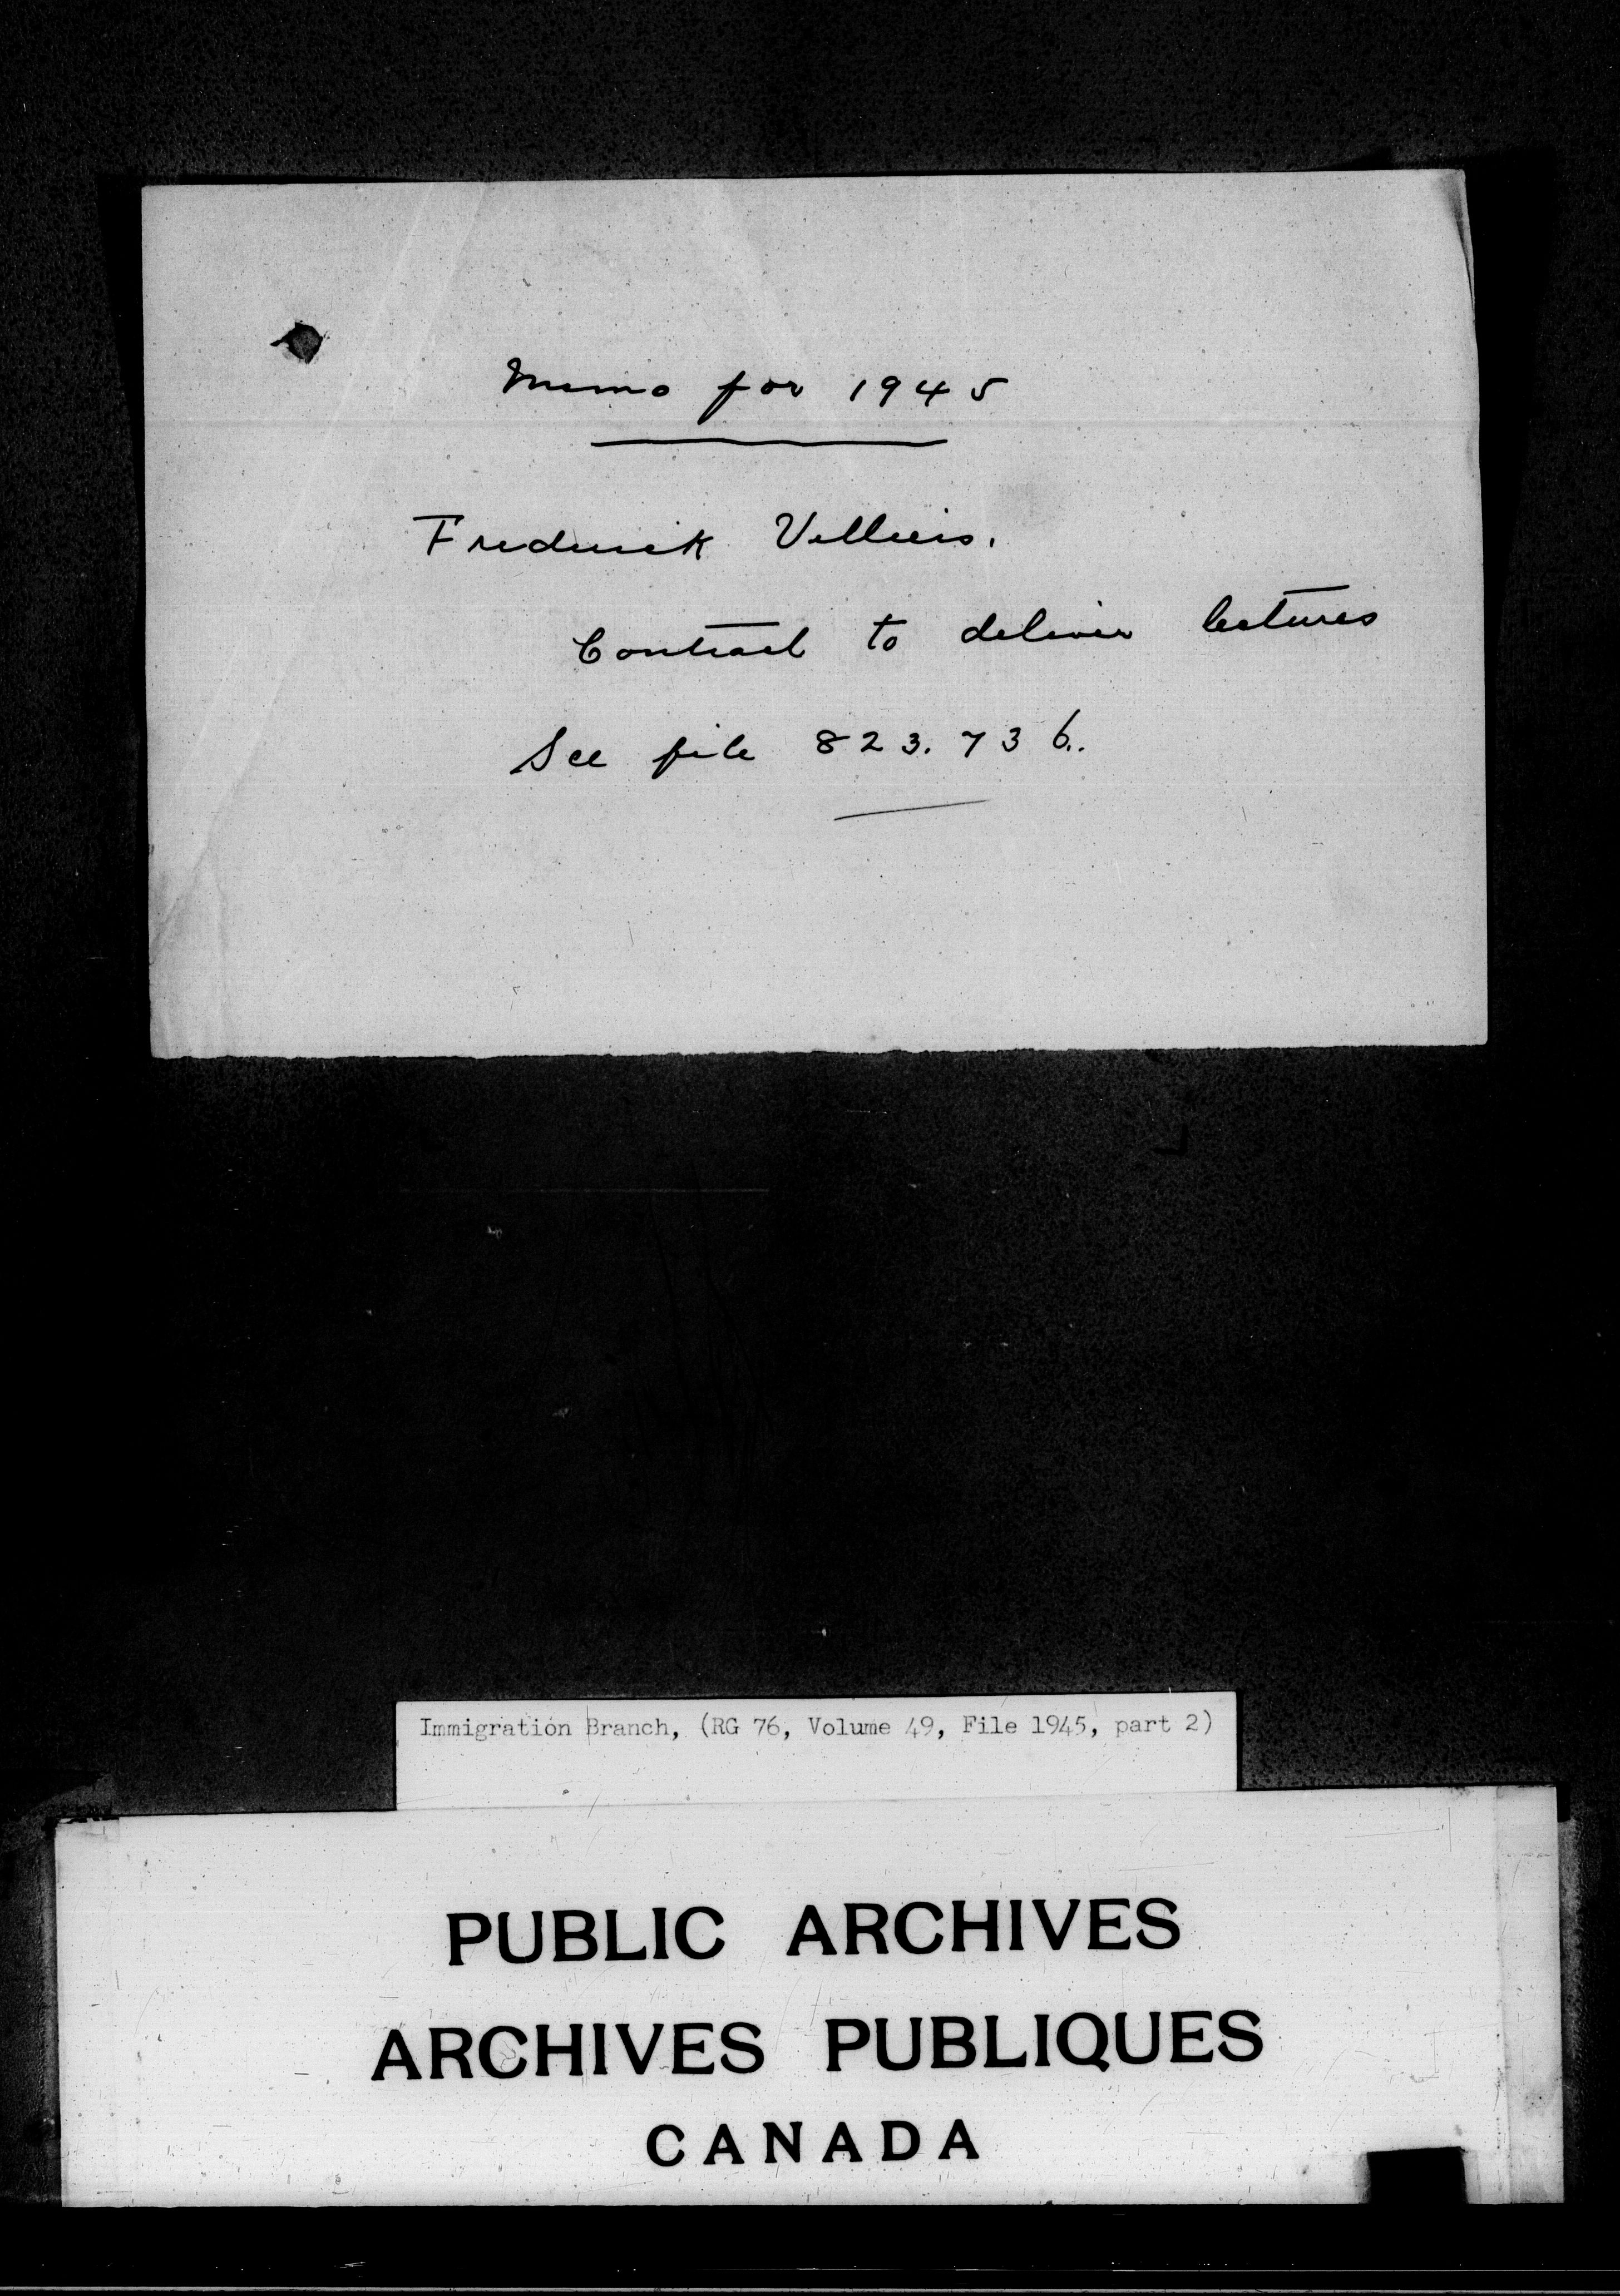 Memo for 1945
Frederick Villiers.
Contract to deliver lectures
See file 823.736.
Immigration Branch, (RG 76, Volume 49, File 1945, part 2)
PUBLIC ARCHIVES
ARCHIVES PUBLIQUES
CANADA